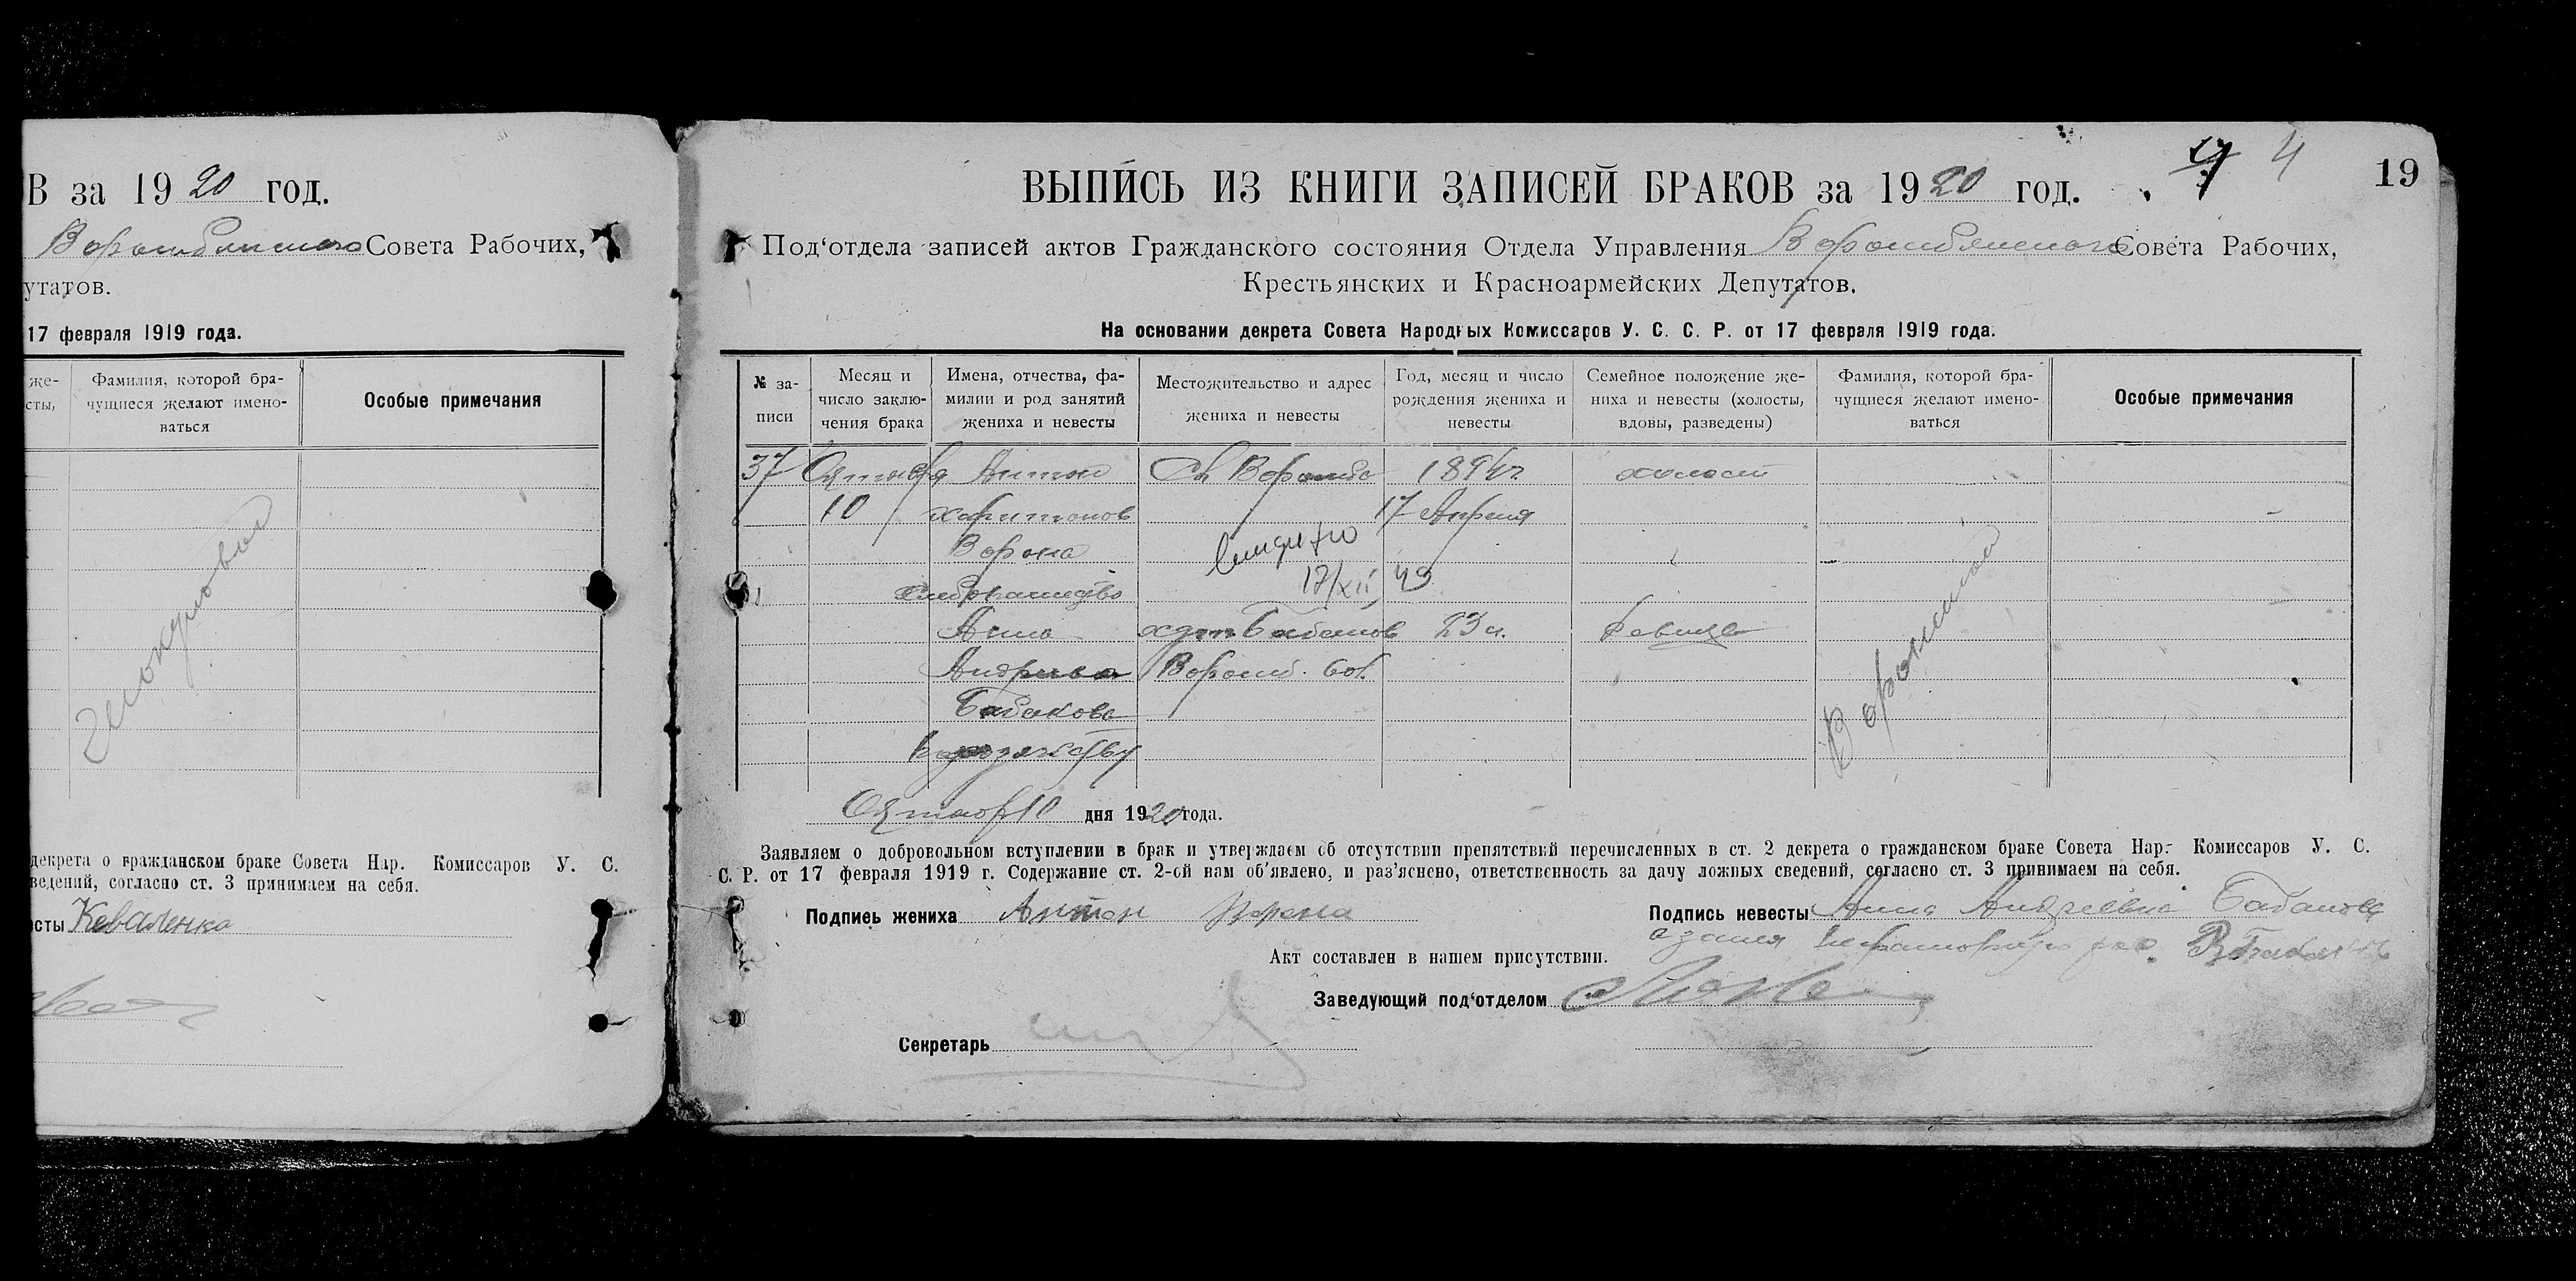 В за 19 20 год.
Ворожбянского Совета Рабочих,
утатов.
17 февраля 1919 года.
же- Фамилия, которой бра-
сты, чущиеся желают имено- Особые примечания
ваться
декрета о гражданском браке Совета Нар. Комиссаров У. С.
ведений, согласно ст. 3 принимаем на себя.
сты Коваленко
4 19
ВЫПИСЬ ИЗ КНИГИ ЗАПИСЕЙ БРАКОВ за 19 20 год.
Под‘отдела записей актов Гражданского состояния Отдела Управления Ворожбянского Совета Рабочих,
Крестьянских и Красноармейских Депутатов.
На основании декрета Совета Народных Комиссаров У. С. С. Р. от 17 февраля 1919 года.
№ за- Месяц и Имена, отчества, фа- Местожительство и адрес Год, месяц и число Семейное положение же- Фамилия, которой бра- Особые примечания
число заклю- милии и род занятий рождения жениха и ниха и невесты (холосты, чущиеся желают имено-
писи чения брака жениха и невесты жениха и невесты невесты вдовы, разведены) ваться
37 Октября Антон Сл Ворожба холост
10 Харитонов 17 Апреля
Ворона
17/XII 49
хлебопашество
Анна Бабаков 23 л. девица
Андреева Ворожб. вол.
Бабакова
Октябр 10 дня 1920 года.
Заявляем о добровольном вступлении в брак и утверждаем об отсутствии препятствий перечисленных в ст. 2 декрета о гражданском браке Совета Нар. Комиссаров У. С.
С. Р. от 17 февраля 1919 г. Содержание ст. 2-ой нам об‘явлено, и раз‘яснено, ответственность за дачу ложных сведений, согласно ст. 3 принимаем на себя.
Подпись жениха Антон Ворона Подпись невесты Анна Андреевна Бабакова
Акт составлен в нашем присутствии.
Заведующий под‘отделом
Секретарь